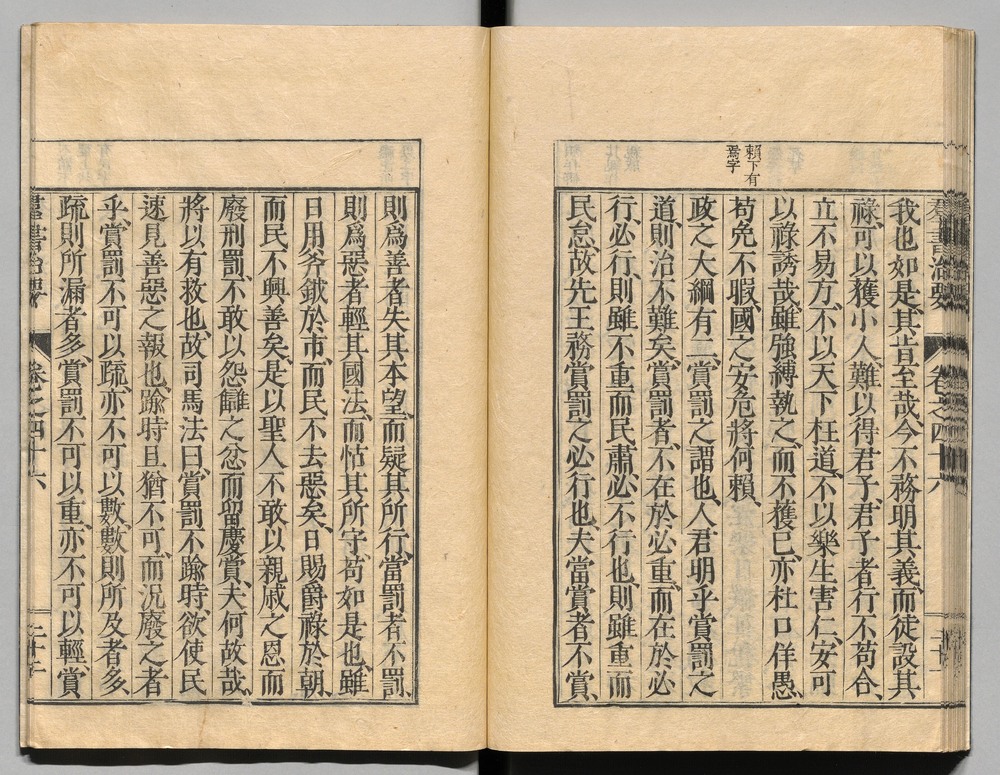 羣書治要 卷之四十六
我也、如是其肯至哉、今不務明其義、而徒設其
祿、可以獲小人、難以得君子、君子者行不苟合、
立不易方、不以天下枉道、不以樂生害仁、安可
以祿誘哉、雖強縛執之、而不獲已、亦杜口佯愚、
苟免不暇、國之安危將何賴、
賴下有
焉字
政之大綱有二、賞罰之謂也、人君明乎賞罰之
道、則治不難矣、賞罰者、不在於必重、而在於必
行、必行、則雖不重而民肅、必不行也、則雖重而
民怠、故先王務賞罰之必行也、夫當賞者不賞、
則爲善者失其本望、而疑其所行、當罰者不罰、
則爲惡者輕其國法、而怙其所守、苟如是也、雖
日用斧鉞於市、而民不去惡矣、日賜爵祿於朝、
而民不興善矣、是以聖人不敢以親戚之恩而
廢刑罰、不敢以怨讎之忿而留慶賞、夫何故哉、
將以有救也、故司馬法曰、賞罰不踰時、欲使民
速見善惡之報也、踰時且猶不可、而況廢之者
乎、賞罰不可以疏、亦不可以數、數則所及者多、
疏則所漏者多、賞罰不可以重、亦不可以輕、賞
羣書治要 卷之四十六